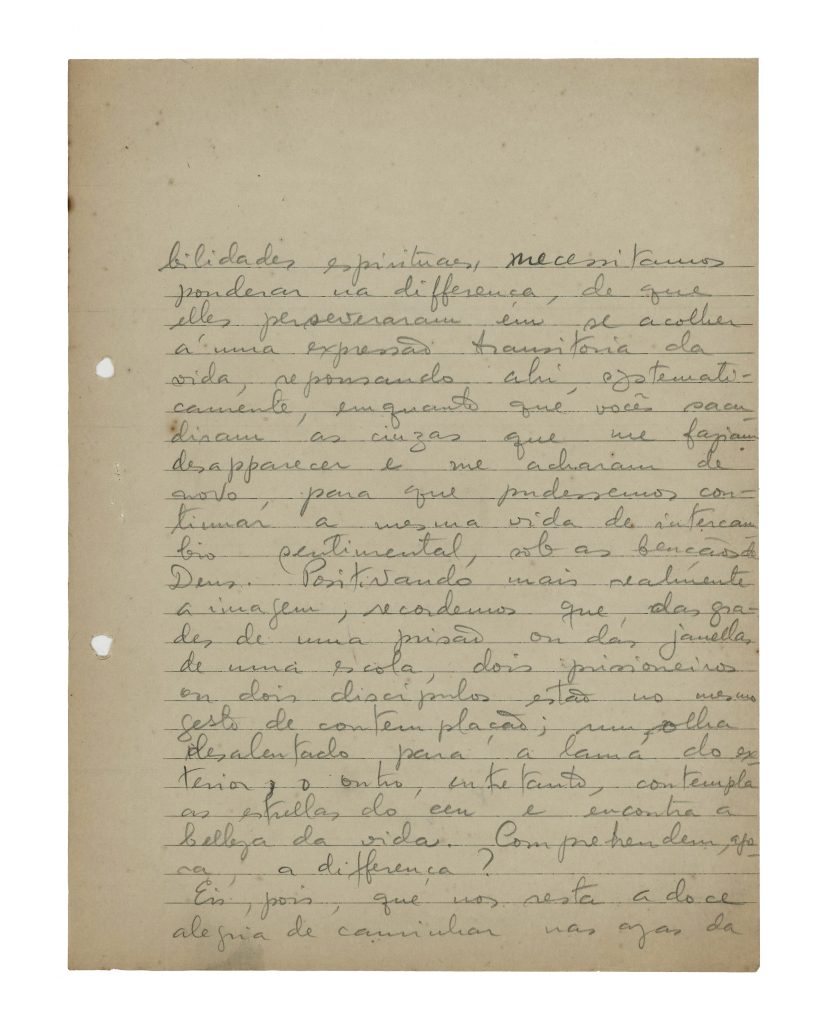 bilidades espirituaes, necessitamos
ponderar na differença, de que
elles perseveraram em se acolher
a' uma expressão transitoria da
vida, repousando, ahi, systemati-
camente, emquanto que vocês sacu
diram as cinzas que me faziam
desapparecer e me acharam de
novo, para que pudessemos con-
tinuar a mesma vida de intercam
bio sentimental, sob as bençãos de
Deus. Positivando mais realmente
a imagem, recordemos que, das gra-
des de uma prisão ou das janellas
de uma escola, dois prisioneiros
ou dois discipulos estão no mesmo
gesto de contemplação; um, olha
desalentado para a lama do ex-
terior, o outro, entretanto, contempla
as estrellas do ceu e encontra a
belleza da vida. Comprehendem, ago-
ra, a differença?
Eis, pois, que nos resta a doce
alegria de caminhar nas azas da